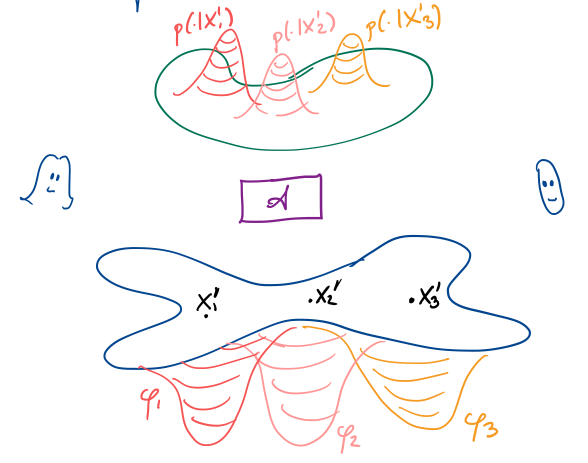 p(·|X₁')
p(·|X₂')
p(·|X₃')
A
X₁'
X₂'
X₃'
φ₁
φ₂
φ₃